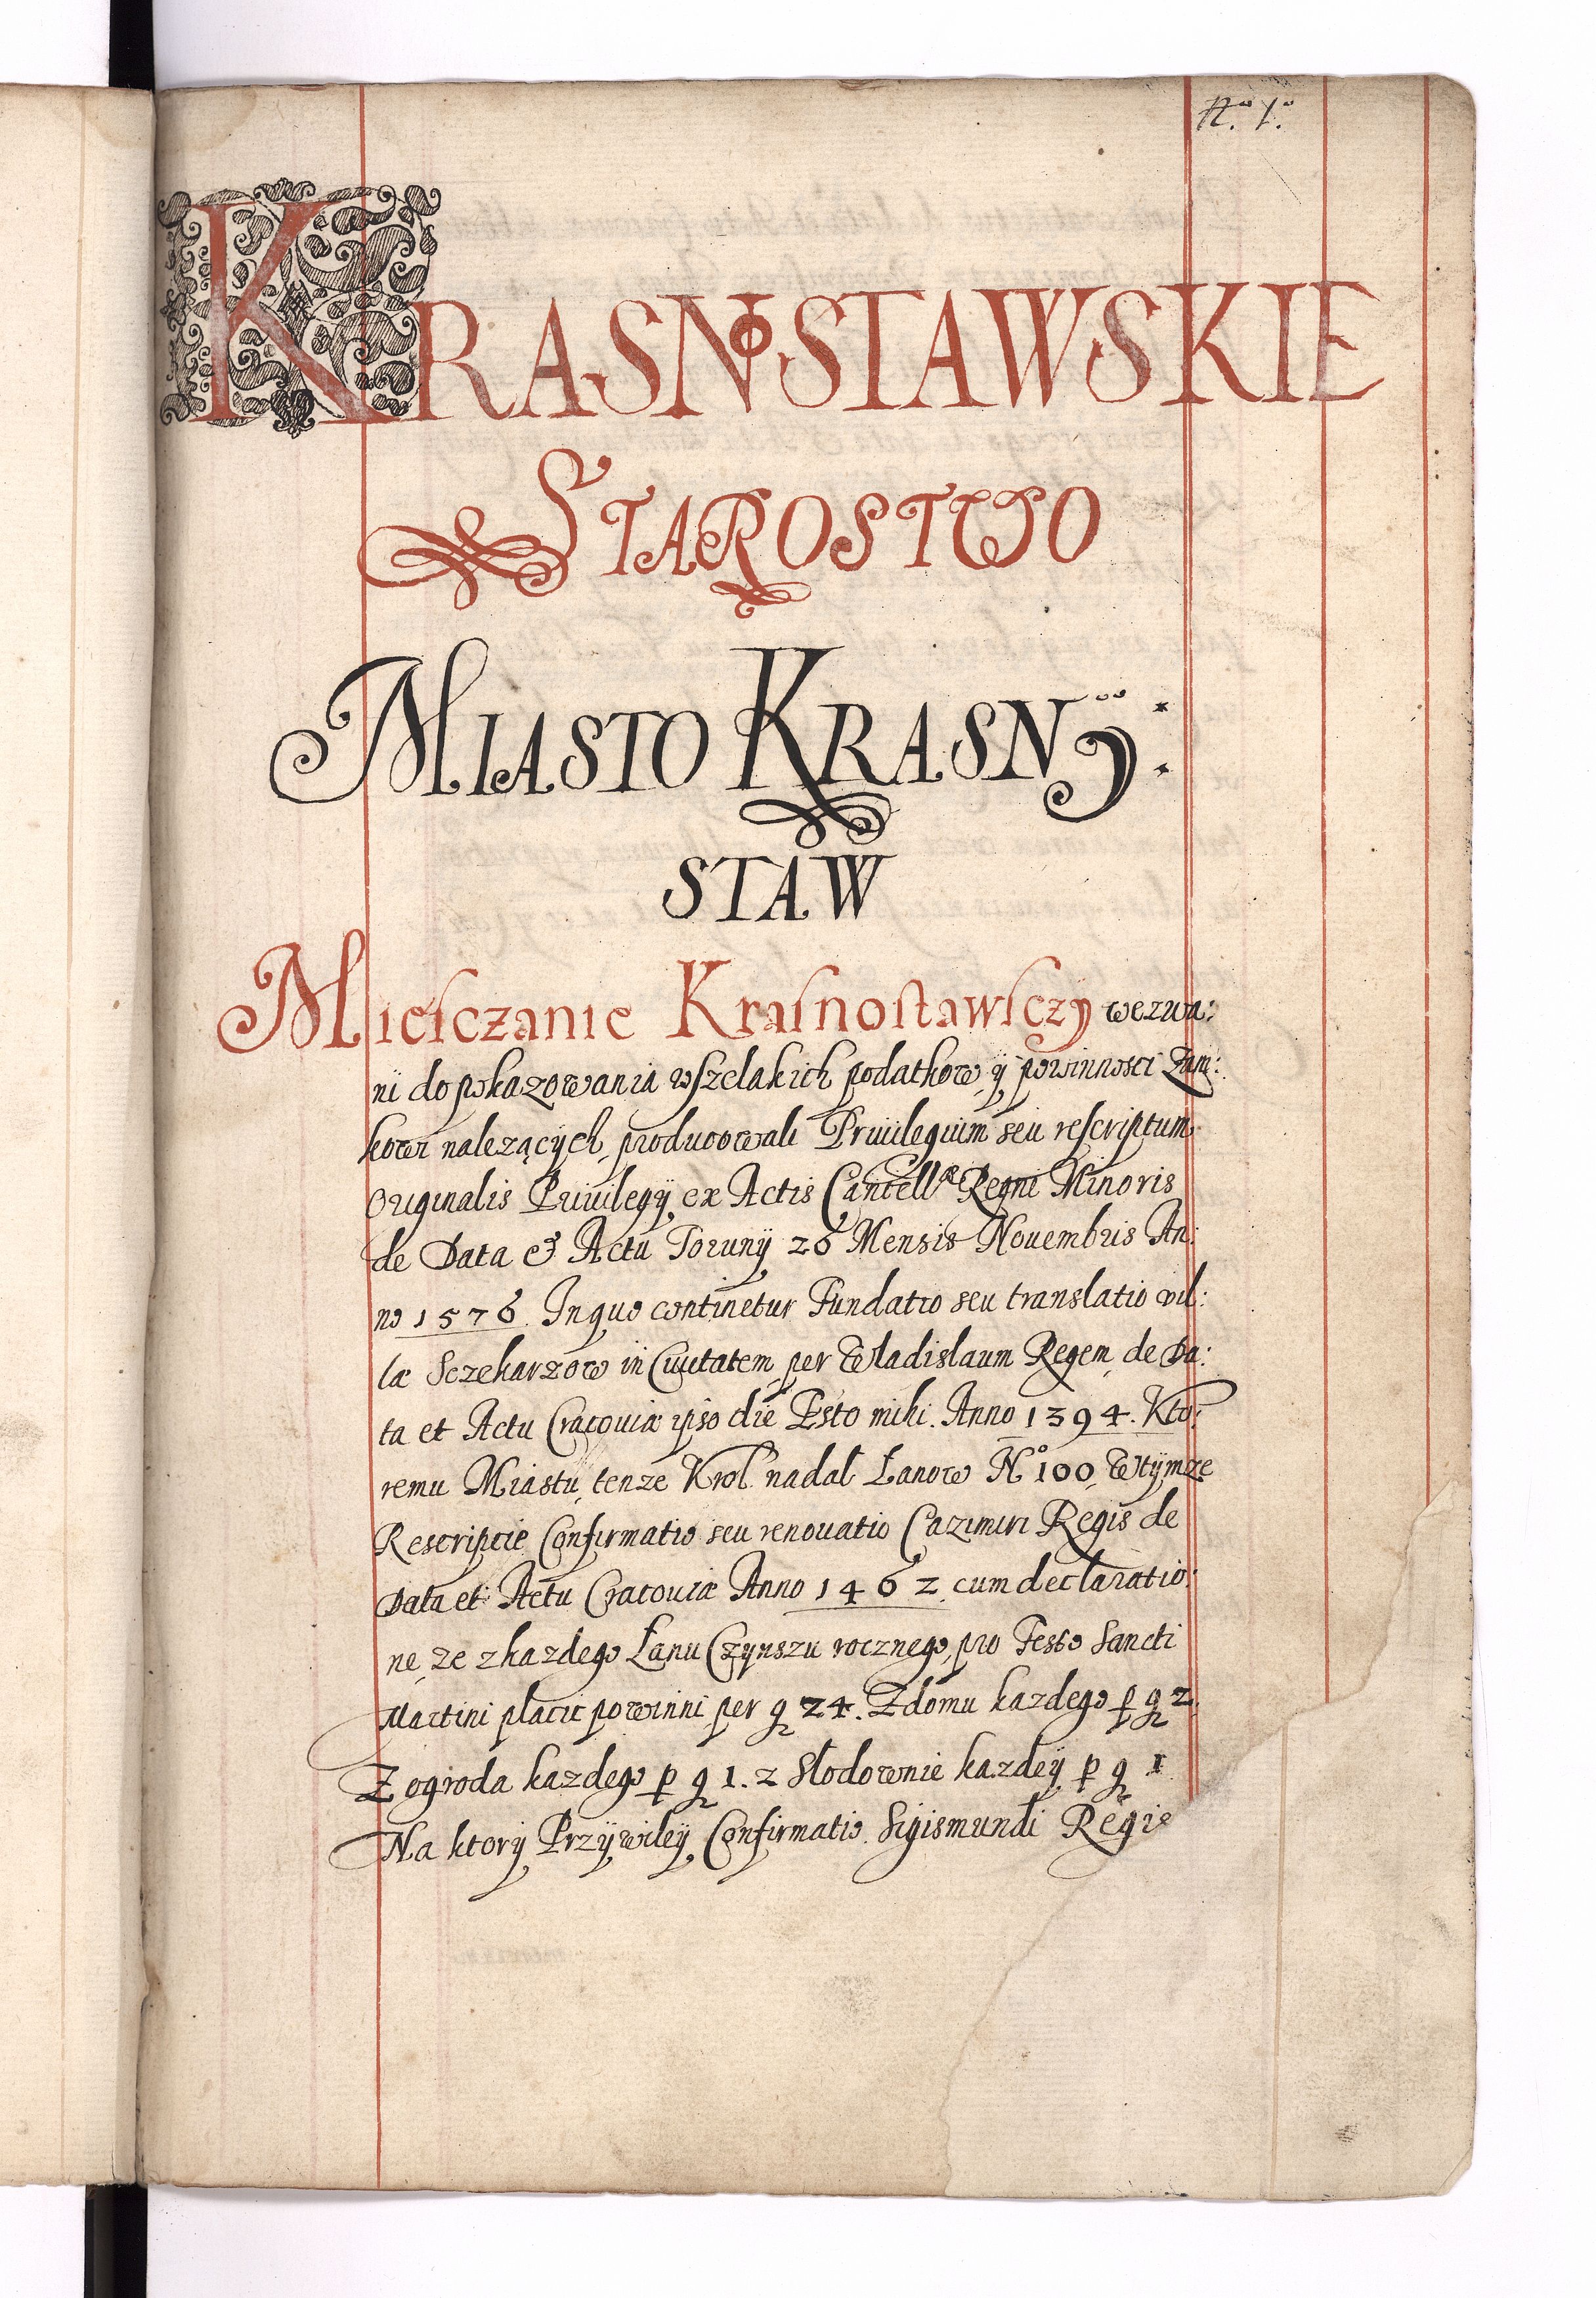 N.º 1.º
KRASNOSTAWSKIE
STAROSTWO
MIASTO KRASNÿ:
STAW
Mieſczanie Kraſnoſtawſczÿ wezwa:
ni do pokazowania wſzelakich podatkow ÿ powinnosci Zam:
kowi nalezącÿch, producowali Priuilegium seu reſcriptum
Originalis Priuilegÿ ex Actis Cancellræ Regni Minoris
de Data & Actu Torunÿ 26 Mensis Nouembris An:
no 1576. In quo continetur Fundatio seu translatio vil:
læ Sczekarzow in Ciuitatem per Wladislaum Regem de Da:
ta et Actu Cracouiæ ipso die Esto mihi. Anno 1394. Kto:
remu Miastu, tenze Krol nadał Łanow Nº 100 Wtÿmze
Rescripcie Confirmatio seu renouatio Cazimiri Regis de
Data et Actu Cracouiæ Anno 1462, cum declaratio:
ne, ze zkazdego Łanu Czynszu rocznego, pro Festo Sancti
Martini płacić powinni per g 24. Zdomu kazdego p g 2
Z ogroda kazdego p g 1. z Słodownie kazdeÿ p g 1
Na ktorÿ Przÿwileÿ Confirmatio Sigismundi Regis